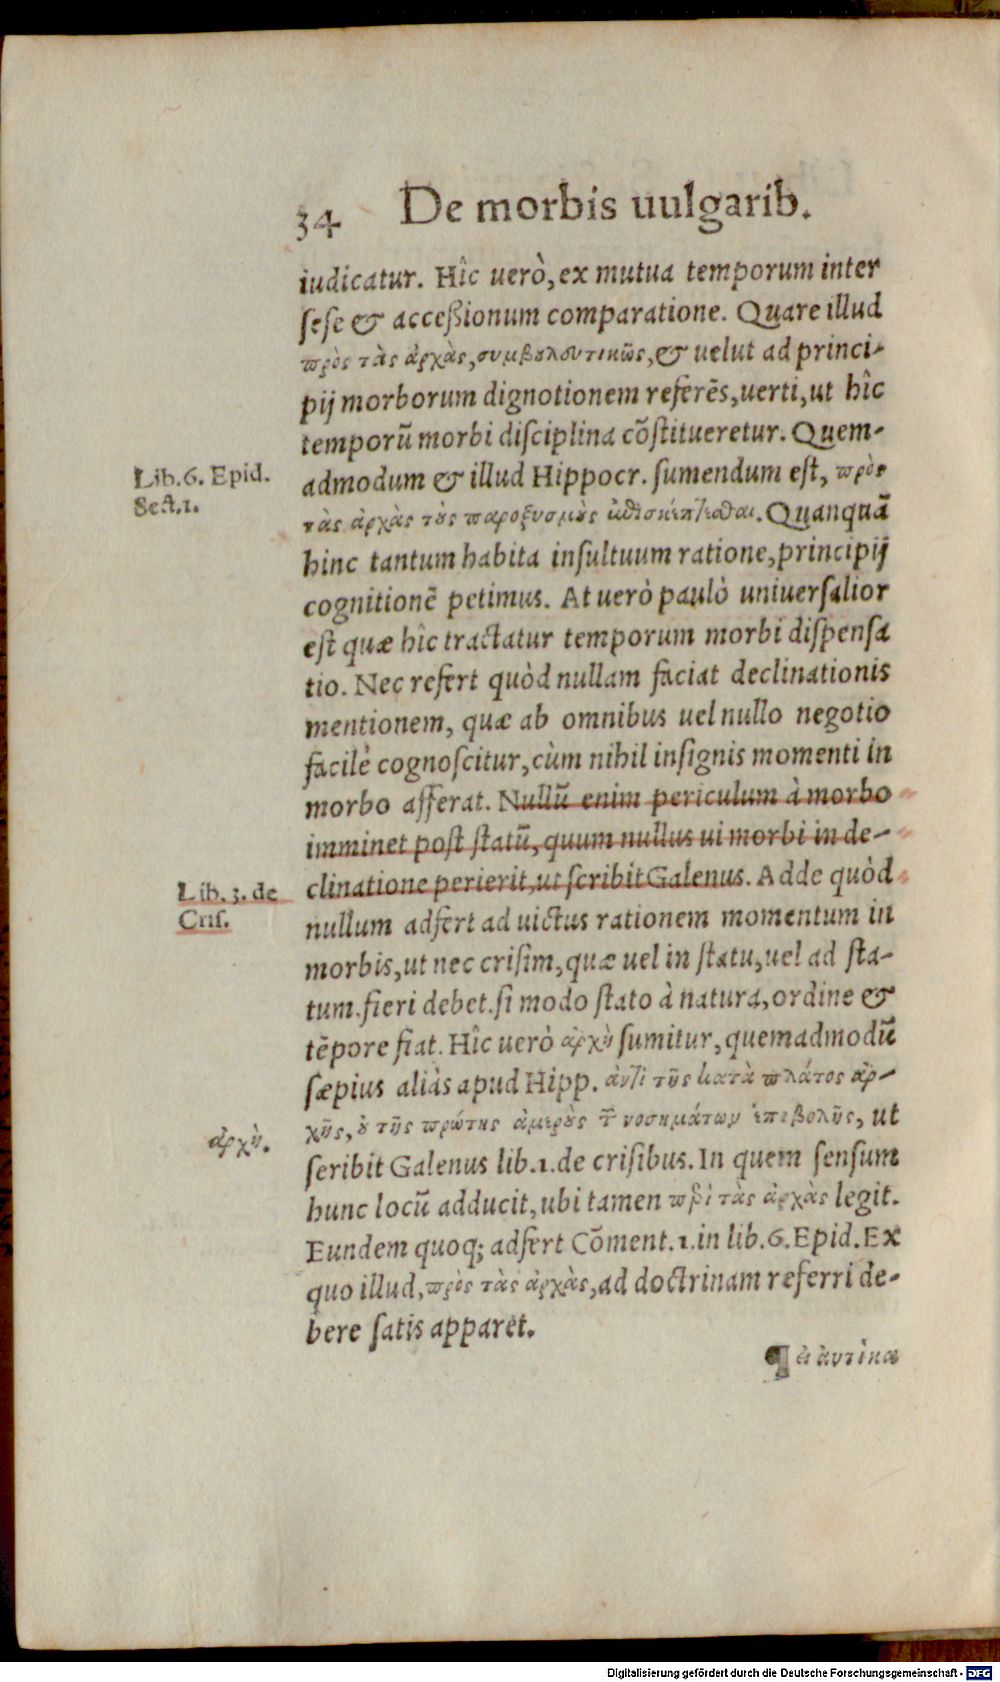 34 De morbis uulgarib.
iudicatur. Hîc uerò, ex mutua temporum inter
ſeſe & acceßionum comparatione. Quare illud
πρὸς τὰς ἀρχὰς, συμβουλευτικῶς, & uelut ad princi-
pij morborum dignotionem referẽs, uerti, ut hîc
temporũ morbi diſciplina cõſtitueretur. Quem-
admodum & illud Hippocr. ſumendum eſt, πρὸς
Lib. 6. Epid.
Sect. 1.
τὰς ἀρχὰς τοὺς παροξυσμοὺς . Quanquã
hinc tantum habita inſultuum ratione, principij
cognitionẽ petimus. At uerò paulò uniuerſalior
eſt quæ hîc tractatur temporum morbi diſpenſa
tio. Nec refert quòd nullam faciat declinationis
mentionem, quæ ab omnibus uel nullo negotio
facilè cognoſcitur, cùm nihil inſignis momenti in
morbo afferat. Nullũ enim periculum à morbo
imminet poſt ſtatũ, quum nullus ui morbi in de-
clinatione perierit, ut ſcribit Galenus. Adde quòd
Lib. 3. de
Criſ.
nullum adfert ad uictus rationem momentum in
morbis, ut nec criſim, quæ uel in ſtatu, uel ad ſta-
tum. fieri debet. ſi modo ſtato à natura, ordine &
tẽpore fiat. Hîc uerò ἀρχὴ ſumitur, quemadmodũ
ſæpius aliàs apud Hipp. ἀντὶ τῆς κατὰ πλάτος ἀρ-
ἀρχὴ.
χῆς, ὀ τῆς πρώτης ἀμεροῦς τῶν νοσημάτων ἐπιβολῆς, ut
ſcribit Galenus lib. 1. de criſibus. In quem ſenſum
hunc locũ adducit, ubi tamen περὶ τὰς ἀρχὰς legit.
Eundem quoq; adfert Cõment. 1. in lib. 6. Epid. Ex
quo illud, πρὸς τὰς ἀρχὰς, ad doctrinam referri de-
bere ſatis apparet.
¶ εἰ ἀυτίκα
Digitalisierung gefördert durch die Deutsche Forschungsgemeinschaft - DFG